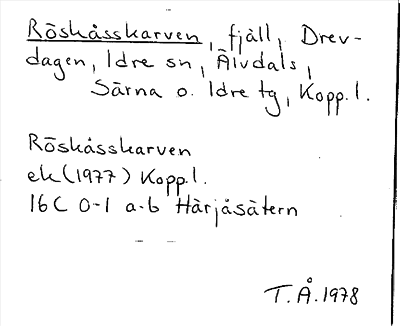 Röskåsskarven, fjäll, Drev-
dagen, Idre sn, Älvdals,
Särna o. Idre tg, Kopp.l.
Röskåsskarven
ek (1977) Kopp.l.
16C 0-1 a-b Härjåsätern
T.Å. 1978